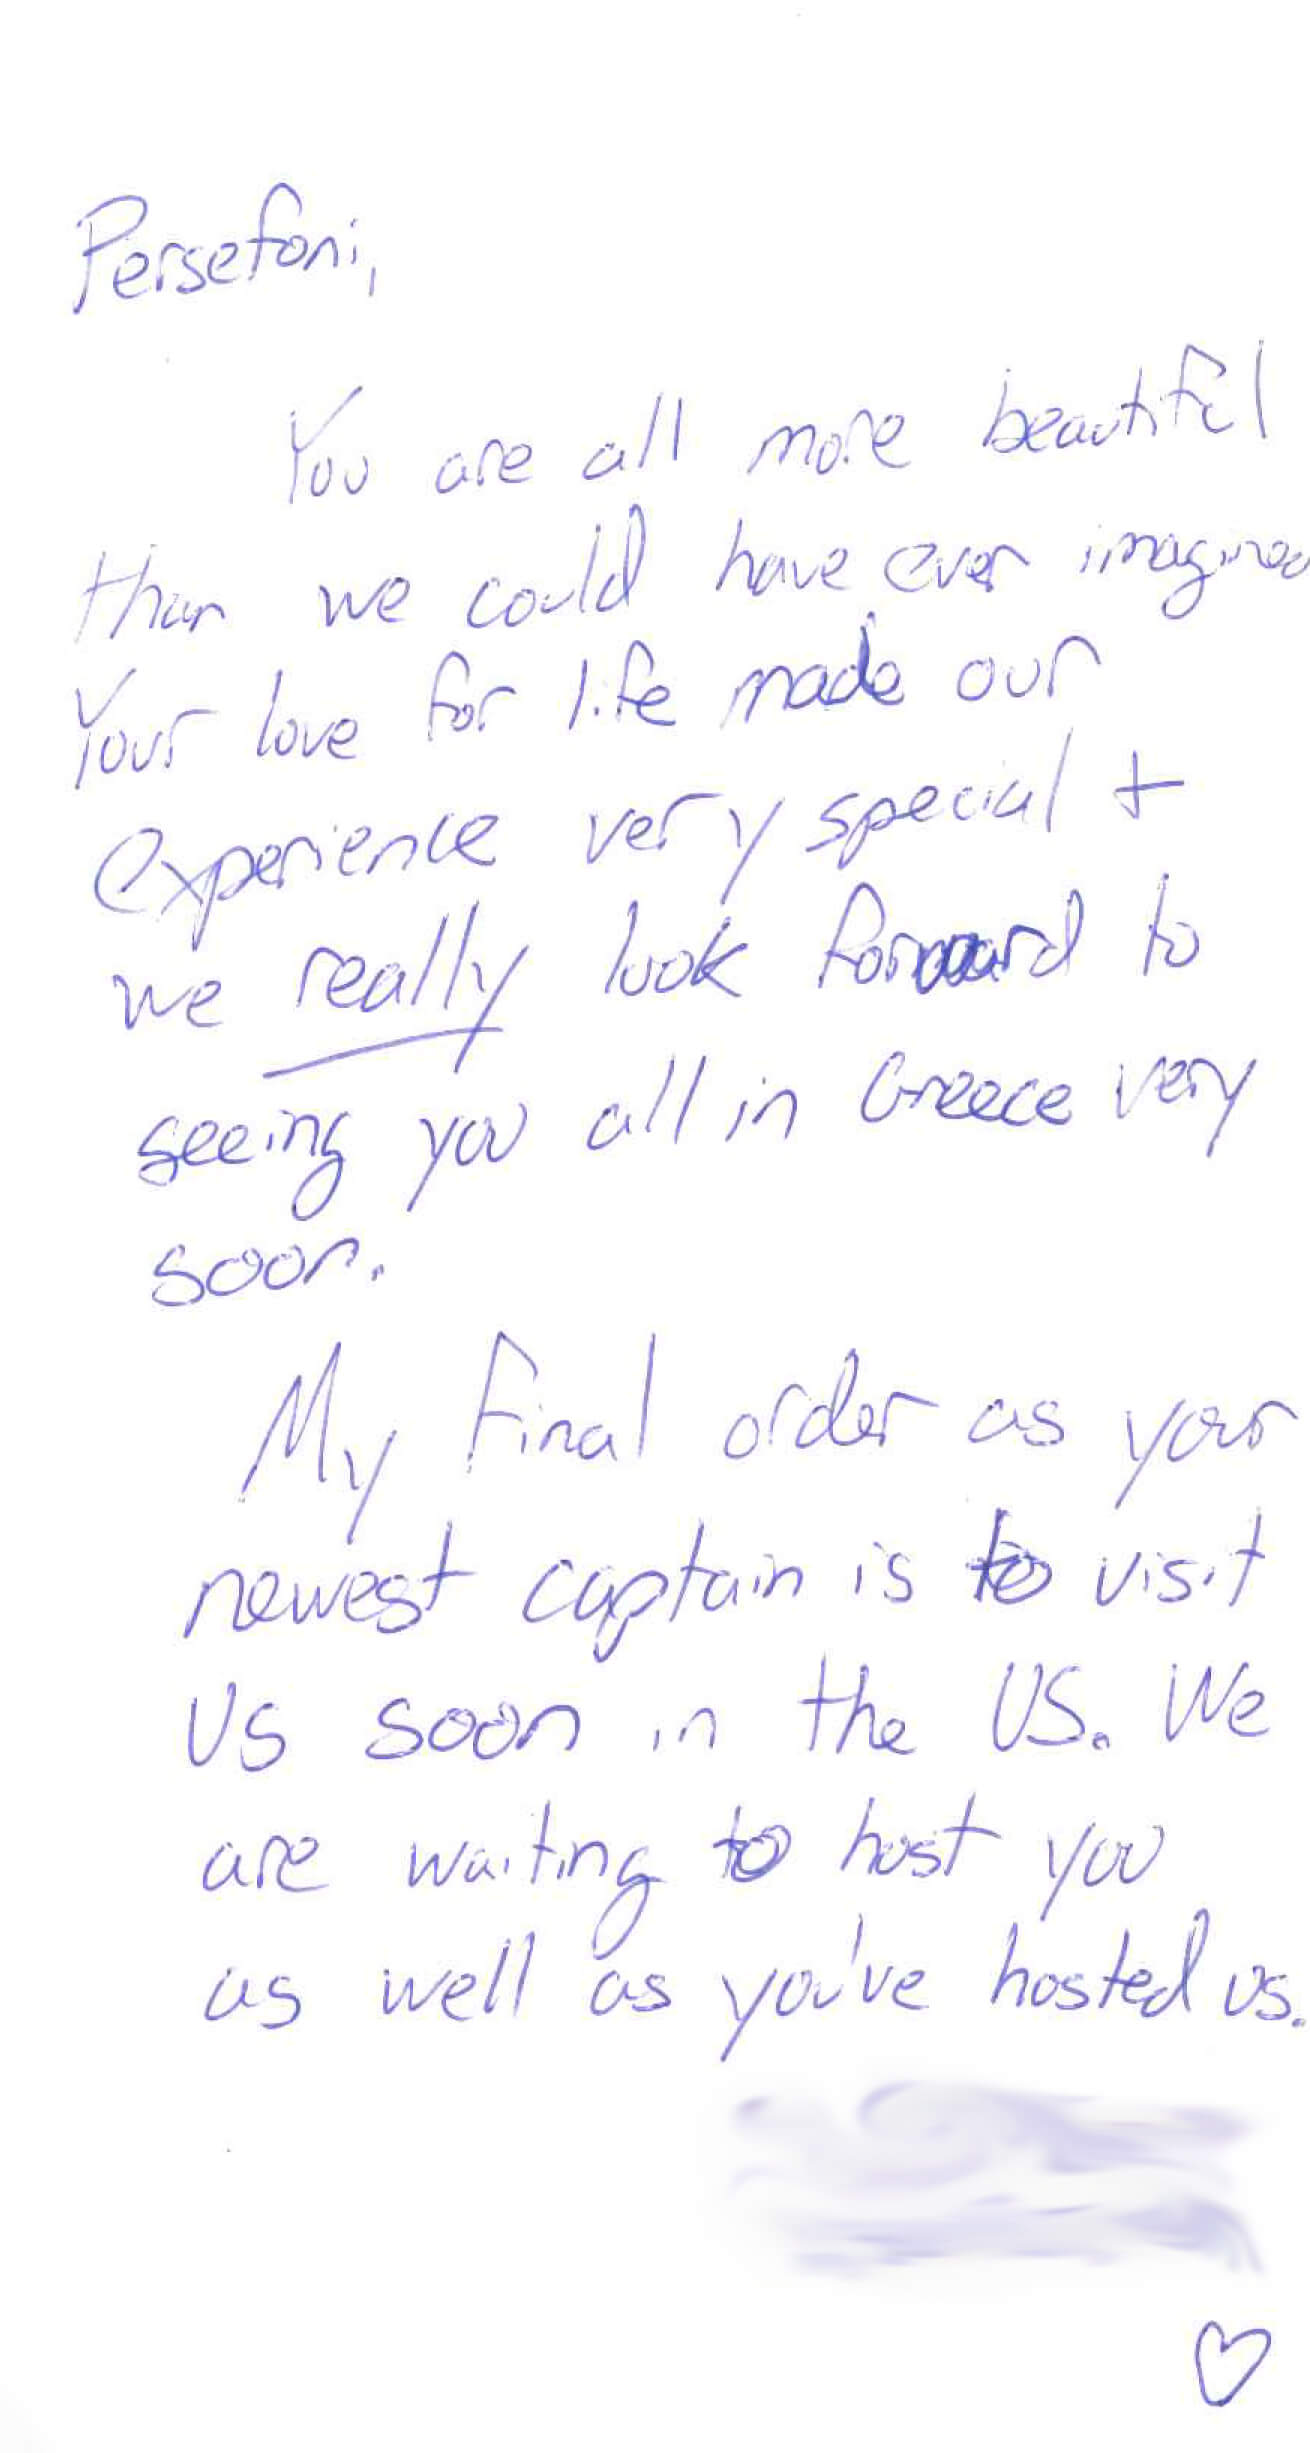 Persefoni,
You are all more beautiful
than we could have ever imagined
Your love for life made our
experience very special +
we really look forward to
seeing you all in Greece very
soon.
My final order as your
newest captain is to visit
us soon in the US. We
are waiting to host you
as well as you've hosted us.